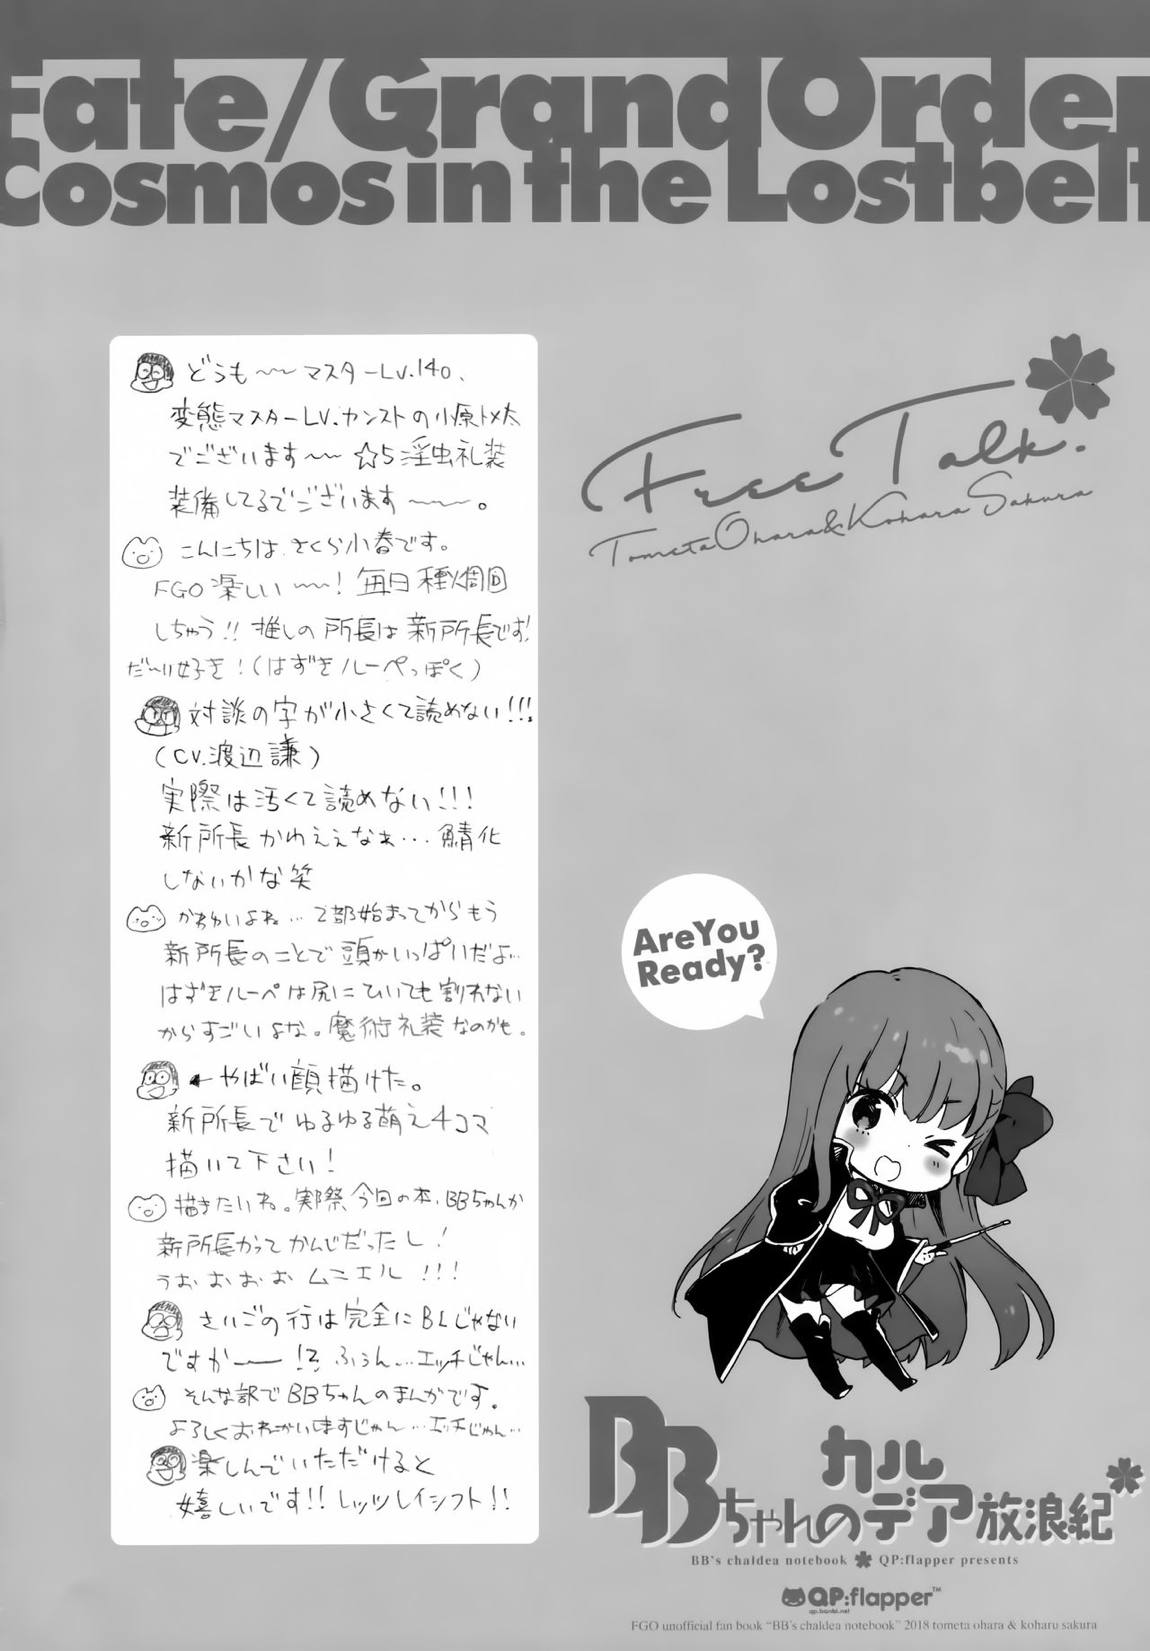 Fate/Grand Order
Cosmos in the Lostbelt
どうも〜〜マスターLv.140、
変態マスターLv.カンストの小原トメ太
でございます〜〜☆5淫虫礼装
装備してるでございます〜〜〜。
こんにちは、さくら小春です。
FGO楽しい〜〜!毎日種火周回
しちゃう!!推しの所長は新所長です!
だ〜い好き!(はずきルーペっぽく)
対談の字が小さくて読めない!!!
(CV.渡辺謙)
実際は汚くて読めない!!!
新所長かわええなぁ…鯖化
しないかな笑
かわいいよね…2部始まってからもう
新所長のことで頭がいっぱいだよ…
はずきルーペは尻にひいても割れない
からすごいよな。魔術礼装なのかも。
←やばい顔描けた。
新所長でゆるゆる萌え4コマ
描いて下さい!
描きたいね。実際今回の本、BBちゃんが
新所長かってかんじだったし!
うおおおおムニエル!!!
さいごの行は完全にBLじゃない
ですかー!?ふぅん…エッチじゃん…
そんな訳でBBちゃんのまんがです。
よろしくおねがいしますじゃん…エッチじゃん…
楽しんでいただけると
嬉しいです!!レッツレイシフト!!
Free Talk.
Tometa Ohara&Koharu Sakura
Are You
Ready?
BBちゃんのカルデア放浪紀
BB's chaldea notebook QP:flapper presents
QP:flapper™
qp.bambi.net
FGO unofficial fan book "BB's chaldea notebook" 2018 tometa ohara & koharu sakura